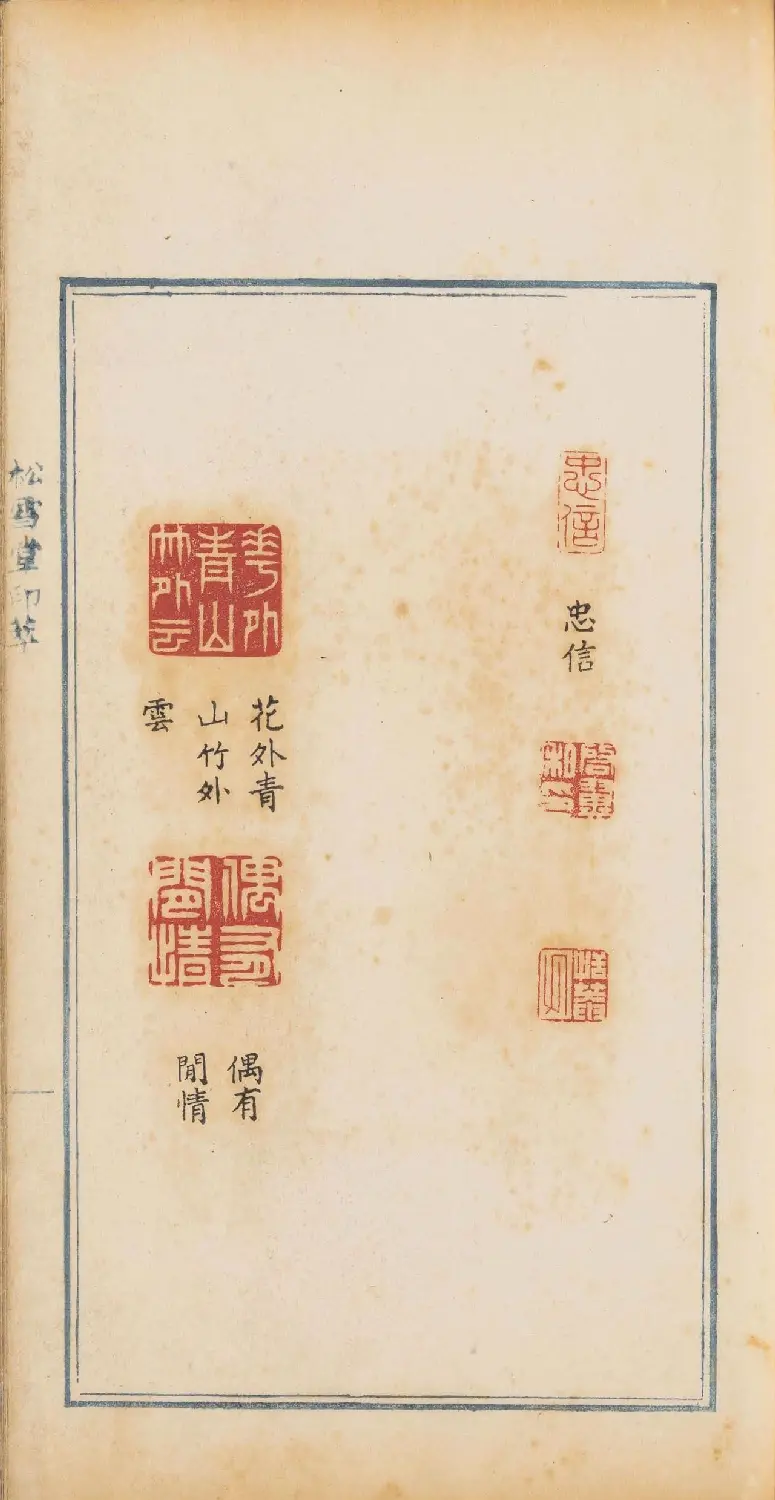 忠信
忠信
華外
青山
竹外云
花外青
山竹外
雲
偶有
閒情
偶有
閒情
松雪堂印萃